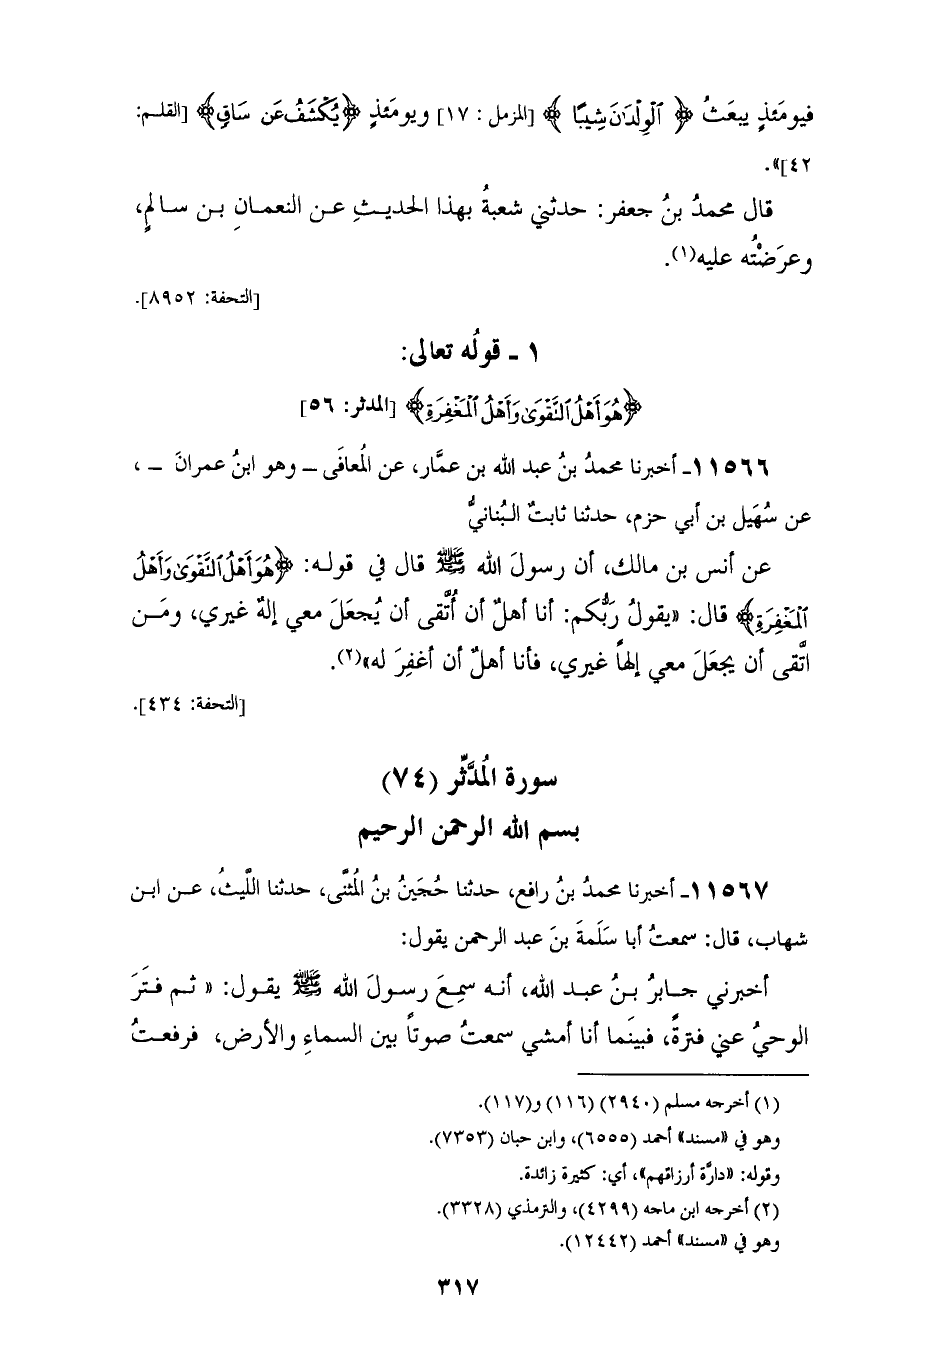 فيومَئذٍ يبعَثُ ﴿ ٱلْوِلْدَٰنَ شِيبًا ﴾ [المزمل : ١٧] ويومَئذٍ ﴿يُكْشَفُ عَن سَاقٍ﴾ [القلم:
٤٢]».
قال محمدُ بنُ جعفر: حدثني شعبةُ بهذا الحديثِ عن النعمانِ بن سالمٍ،
وعرَضْتُه عليه(١).
[التحفة: ٨٩٥٢].
١ ـ قولُه تعالى:
﴿هُوَ أَهْلُ ٱلتَّقْوَىٰ وَأَهْلُ ٱلْمَغْفِرَةِ﴾ [المدثر: ٥٦]
١١٥٦٦ـ أخبرنا محمدُ بنُ عبد الله بن عمَّار، عن المُعافَى ـ وهو ابنُ عمرانَ ـ ،
عن سُهَيل بن أبي حزم، حدثنا ثابتٌ البُنانيُّ
عن أنس بن مالك، أن رسولَ الله ﷺ قال في قوله: ﴿هُوَ أَهْلُ ٱلتَّقْوَىٰ وَأَهْلُ
ٱلْمَغْفِرَةِ﴾ قال: «يقولُ رَبُّكم: أنا أهلٌ أن أُتَّقى أن يُجعَلَ معي إلهٌ غيري، ومَن
اتَّقى أن يجعَلَ معي إلهاً غيري، فأنا أهلٌ أن أغفِرَ له»(٢).
[التحفة: ٤٣٤].
سورة المُدَّثِّر (٧٤)
بسم الله الرحمن الرحيم
١١٥٦٧ـ أخبرنا محمدُ بنُ رافع، حدثنا حُجَينُ بنُ المُثنَّى، حدثنا اللَّيثُ، عن ابن
شهاب، قال: سمعتُ أبا سَلَمةَ بنَ عبد الرحمن يقول:
أخبرني جابرُ بنُ عبد الله، أنه سمِعَ رسولَ الله ﷺ يقول: « ثم فتَرَ
الوحيُ عني فترةً، فبينَما أنا أمشي سمعتُ صوتاً بين السماءِ والأرض، فرفعتُ
(١) أخرجه مسلم (٢٩٤٠) (١١٦) و(١١٧).
وهو في «مسند» أحمد (٦٥٥٥)، وابن حبان (٧٣٥٣).
وقوله: «دارَّة أرزاقهم»، أي: كثيرة زائدة.
(٢) أخرجه ابن ماجه (٤٢٩٩)، والترمذي (٣٣٢٨).
وهو في «مسند» أحمد (١٢٤٤٢).
٣١٧